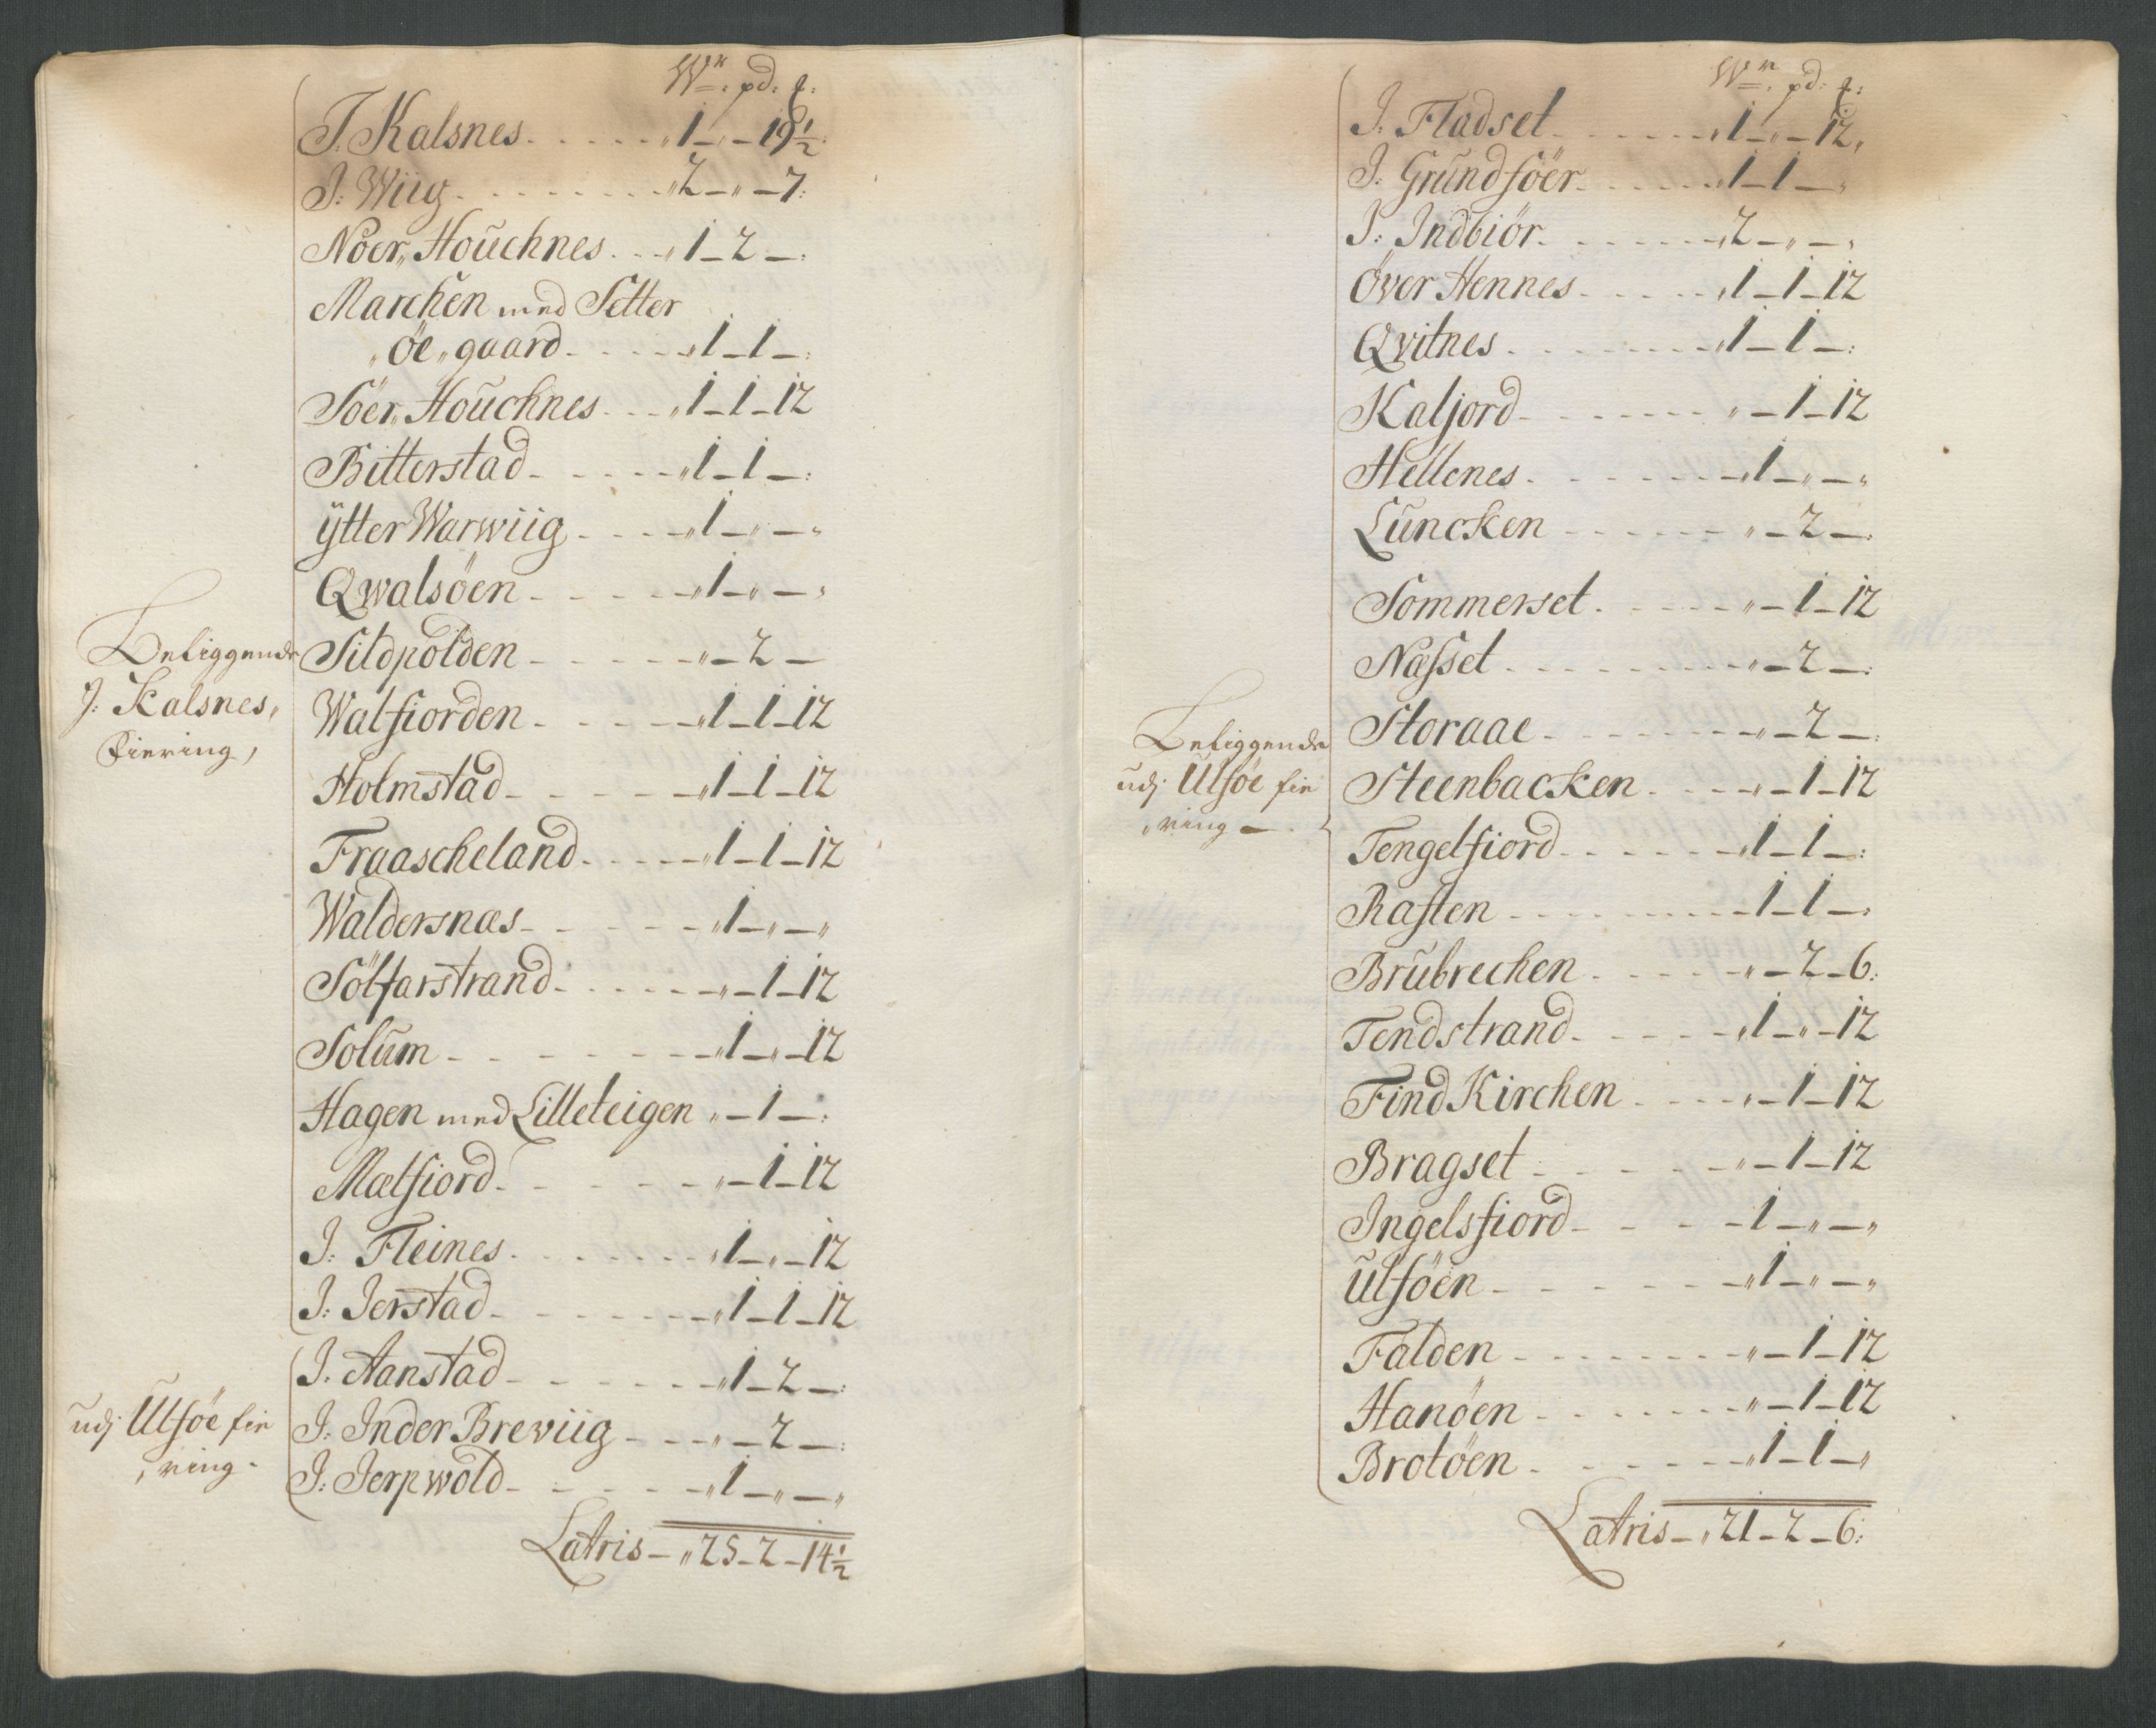 Wr: pd: ℔:
J: Kalsnes - - - - - „ 1 - „ - 19½:
J: Wiig - - - - - - - „ 2 - „ - 7:
Nöer„ Houchnes - - - „ 1 - 2 - :
Marchen med Setter
„ Öe„ gaard - - - - - „ 1 - 1 - :
Söer„ Houchnes - - - „ 1 - 1 - 12
Bitterstad - - - - - „ 1 - 1 - :
ÿtter Warwiig - - - - „ 1 - „ - „
Qwalsöen - - - - - „ 1 - „ - „
Beliggende
J: Kalsnes,
Fiering,
Sildpolden - - - - - „ - 2 -
Walfiorden - - - - - „ 1 - 1 - 12
Holmstad - - - - - „ 1 - 1 - 12
Fraascheland - - - - - „ 1 - 1 - 12
Waldersnæs - - - - - „ 1 - „ - „
Sölfarstrand - - - - - „ - 1 - 12
Solum - - - - - - - „ 1 - „ - 12
Hagen med Lilleteigen „ - 1 - :
Mælfiord - - - - - - „ - 1 - 12
J: Fleines - - - - - - - „ 1 - „ - 12
J: Jerstad - - - - - - - „ 1 - 1 - 12
J: Aanstad - - - - - - „ 1 - 2 - :
udj Ulföe fie
„ ring -
J: Inder Breviig - - - „ - 2 - :
J: Jerpwold - - - - - - „ 1 - „ - „
Latris - „ 25 - 2 - 14½
Wr: pd: ℔:
J: Fladset - - - - - - „ 1 - „ - 12,
J: Grundföer - - - - - „ 1 - 1 - „
J: Indbiör - - - - - - „ 2 - „ - „
Över Hennes - - - - - „ 1 - 1 - 12
Qvitnes - - - - - - - „ 1 - 1 - :
Kaljord - - - - - - - - „ - 1 - 12
Hellenes - - - - - - - „ 1 - „ - „
Luncken - - - - - - „ - 2 - :
Sommerset - - - - - - „ - 1 - 12
Næsset - - - - - - - - „ - 2 - :
Beliggende
udj Ulföe fie
„ ring -
Storaae - - - - - - - - „ - 2 - :
Steenbacken - - - - „ - 1 - 12
Tengelfiord - - - - - - „ 1 - 1 - :
Raften - - - - - - - - - 1 - 1 - „
Brubrechen - - - - - „ - 2 - 6:
Tendstrand - - - - - „ 1 - „ - 12
Find Kirchen - - - - „ - 1 - 12
Bragset - - - - - - „ - 1 - 12
Ingelsfiord - - - - - 1 - „ - „
Ulföen - - - - - - - „ 1 - „ - „
Falden - - - - - - - - „ - 1 - 12
Hanöen - - - - - - - „ - 1 - 12
Brotöen - - - - - - - „ 1 - 1 - „
Latris - „ 21 - 2 - 6: